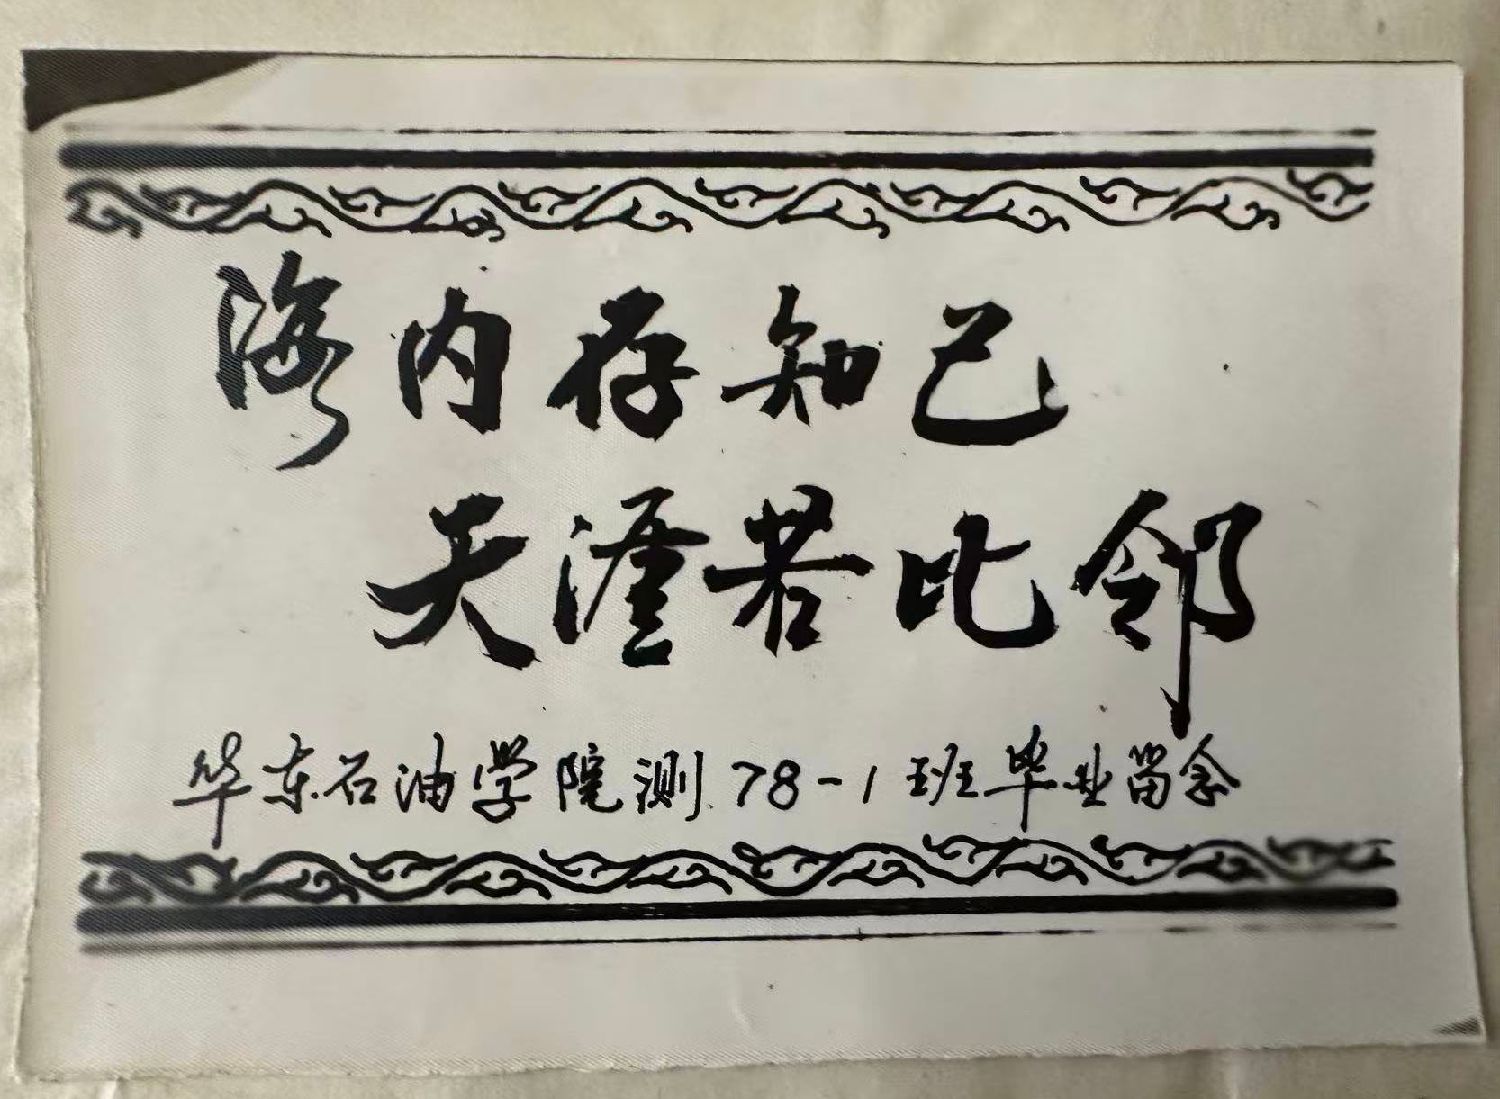 海内存知己
天涯若比邻
华东石油学院测78-1班毕业留念